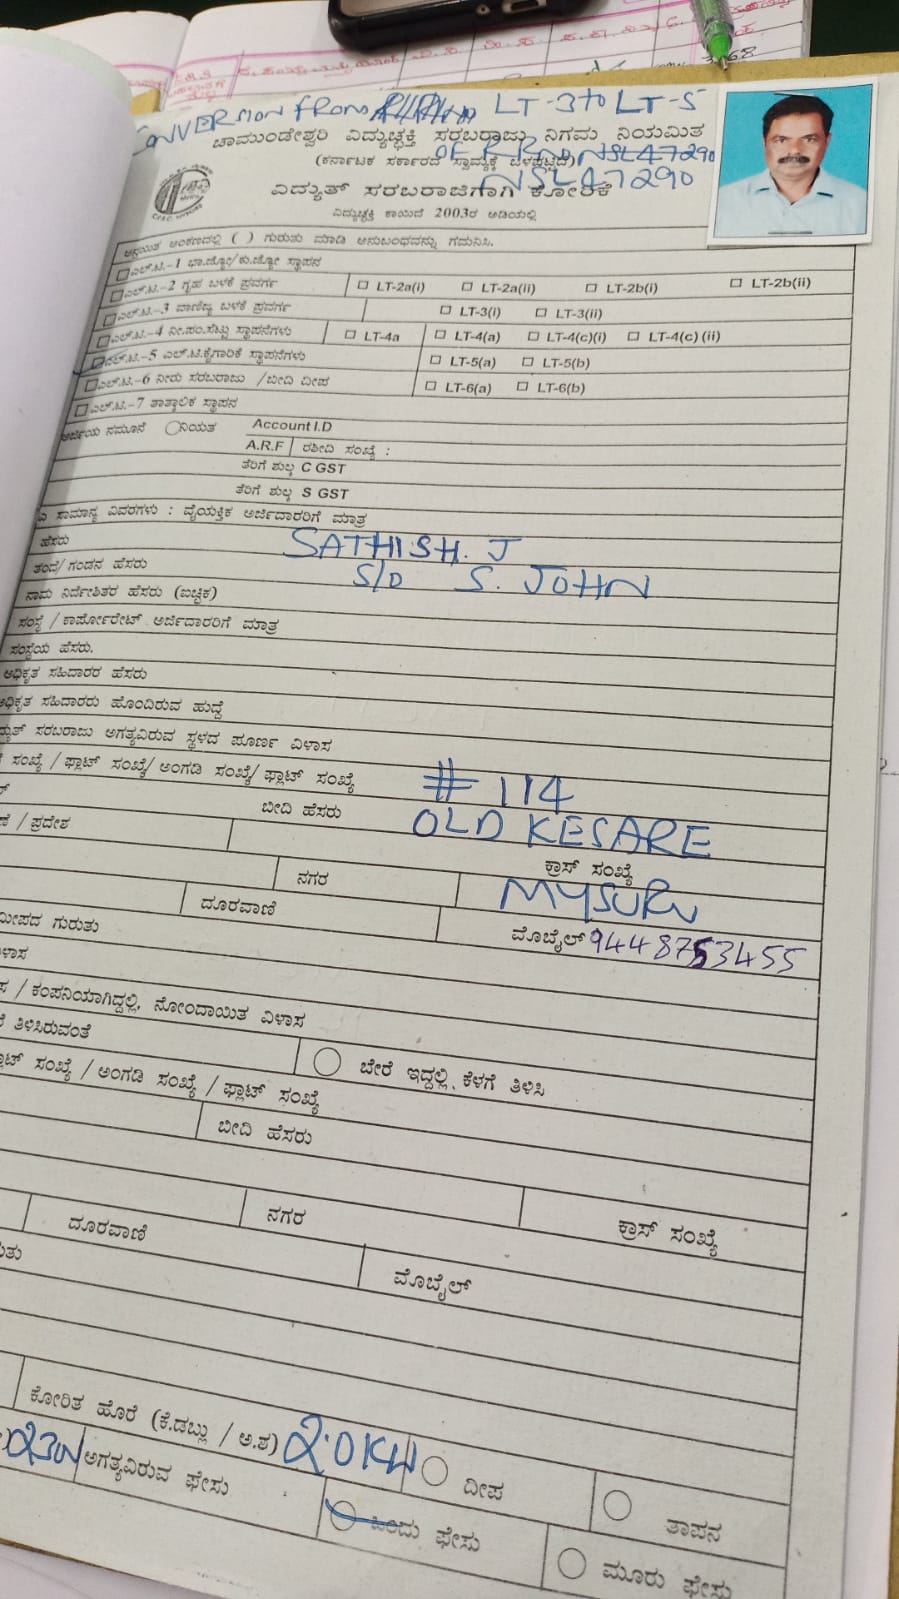 CONVERSION FROM LT-3 to LT-5
ಚಾಮುಂಡೇಶ್ವರಿ ವಿದ್ಯುಚ್ಛಕ್ತಿ ಸರಬರಾಜು ನಿಗಮ ನಿಯಮಿತ
(ಕರ್ನಾಟಕ ಸರ್ಕಾರದ ಸ್ವಾಮ್ಯಕ್ಕೆ ಒಳಪಟ್ಟಿದೆ)
OF RRNO NSL47290
NSL47290
ವಿದ್ಯುತ್ ಸರಬರಾಜಿಗಾಗಿ ಕೋರಿಕೆ
ವಿದ್ಯುಚ್ಛಕ್ತಿ ಕಾಯಿದೆ 2003ರ ಅಡಿಯಲ್ಲಿ
ಅನ್ವಯಿತ ಅಂಕಣದಲ್ಲಿ ( ) ಗುರುತು ಮಾಡಿ ಅನುಬಂಧವನ್ನು ಗಮನಿಸಿ.
ಎಲ್.ಟಿ.-1 ಭಾ.ಜ್ಯೋ/ಕು.ಜ್ಯೋ ಸ್ಥಾಪನ
ಎಲ್.ಟಿ.-2 ಗೃಹ ಬಳಕೆ ಪ್ರವರ್ಗ LT-2a(i) LT-2a(ii) LT-2b(i) LT-2b(ii)
ಎಲ್.ಟಿ.-3 ವಾಣಿಜ್ಯ ಬಳಕೆ ಪ್ರವರ್ಗ LT-3(i) LT-3(ii)
ಎಲ್.ಟಿ.-4 ನೀ.ಪಂ.ಸೆಟ್ಟು ಸ್ಥಾಪನೆಗಳು LT-4a LT-4(a) LT-4(c)(i) LT-4(c)(ii)
ಎಲ್.ಟಿ.-5 ಎಲ್.ಟಿ.ಕೈಗಾರಿಕೆ ಸ್ಥಾಪನೆಗಳು LT-5(a) LT-5(b)
ಎಲ್.ಟಿ.-6 ನೀರು ಸರಬರಾಜು /ಬೀದಿ ದೀಪ LT-6(a) LT-6(b)
ಎಲ್.ಟಿ.-7 ತಾತ್ಕಾಲಿಕ ಸ್ಥಾಪನ
ಅರ್ಜಿಯ ನಮೂನೆ ನಿಯತ Account I.D
A.R.F ರಶೀದಿ ಸಂಖ್ಯೆ :
ತೆರಿಗೆ ಶುಲ್ಕ C GST
ತೆರಿಗೆ ಶುಲ್ಕ S GST
ಸಾಮಾನ್ಯ ವಿವರಗಳು : ವೈಯಕ್ತಿಕ ಅರ್ಜಿದಾರರಿಗೆ ಮಾತ್ರ
ಹೆಸರು SATHISH. J
ತಂದೆ/ಗಂಡನ ಹೆಸರು S/O S. JOHN
ನಾಮ ನಿರ್ದೇಶಿತರ ಹೆಸರು (ಐಚ್ಛಿಕ)
ಸಂಸ್ಥೆ / ಕಾರ್ಪೋರೇಟ್ ಅರ್ಜಿದಾರರಿಗೆ ಮಾತ್ರ
ಸಂಸ್ಥೆಯ ಹೆಸರು.
ಅಧಿಕೃತ ಸಹಿದಾರರ ಹೆಸರು
ಅಧಿಕೃತ ಸಹಿದಾರರು ಹೊಂದಿರುವ ಹುದ್ದೆ
ಸರಬರಾಜು ಅಗತ್ಯವಿರುವ ಸ್ಥಳದ ಪೂರ್ಣ ವಿಳಾಸ
ಸಂಖ್ಯೆ / ಫ್ಲಾಟ್ ಸಂಖ್ಯೆ/ ಅಂಗಡಿ ಸಂಖ್ಯೆ/ ಫ್ಲಾಟ್ ಸಂಖ್ಯೆ # 114
ಬೀದಿ ಹೆಸರು OLD KESARE
/ ಪ್ರದೇಶ ಕ್ರಾಸ್ ಸಂಖ್ಯೆ
ನಗರ MYSURU
ದೂರವಾಣಿ ಮೊಬೈಲ್ 9448753455
ಗುರುತು
/ ಕಂಪನಿಯಾಗಿದ್ದಲ್ಲಿ, ನೋಂದಾಯಿತ ವಿಳಾಸ
ತಿಳಿಸಿರುವಂತೆ ಬೇರೆ ಇದ್ದಲ್ಲಿ, ಕೆಳಗೆ ತಿಳಿಸಿ
ಸಂಖ್ಯೆ / ಅಂಗಡಿ ಸಂಖ್ಯೆ / ಫ್ಲಾಟ್ ಸಂಖ್ಯೆ
ಬೀದಿ ಹೆಸರು
ನಗರ ಕ್ರಾಸ್ ಸಂಖ್ಯೆ
ದೂರವಾಣಿ ಮೊಬೈಲ್
ಕೋರಿತ ಹೊರೆ (ಕೆ.ಡಬ್ಲ್ಯು / ಅ.ಶ) 2.0KW ದೀಪ ತಾಪನ
ಅಗತ್ಯವಿರುವ ಫೇಸು ಒಂದು ಫೇಸು ಮೂರು ಫೇಸು